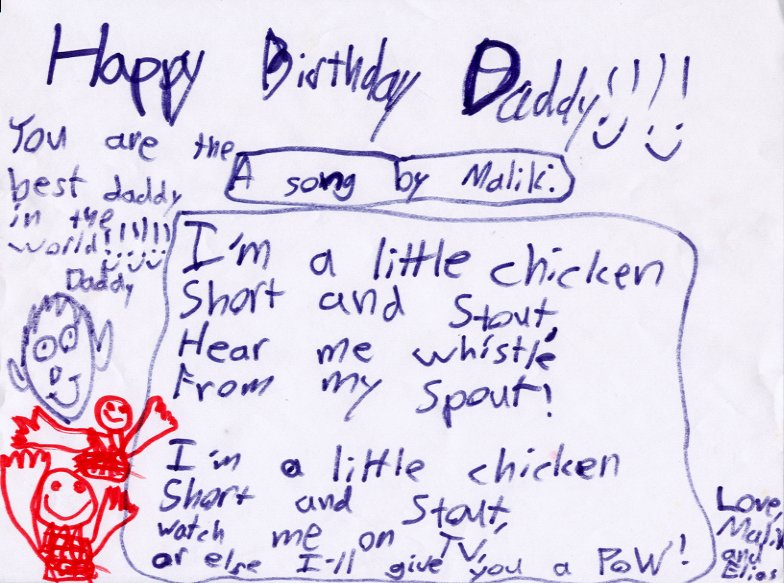 Happy Birthday Daddy!!!!
You are the
best daddy
in the
world!!!!!!
Daddy
A song by Malik.
I'm a little chicken
Short and Stout,
Hear me whistle
From my Spout!
I'm a little chicken
Short and Stout,
watch me on TV,
or else I-ll give you a PoW!
Love,
Malik
and